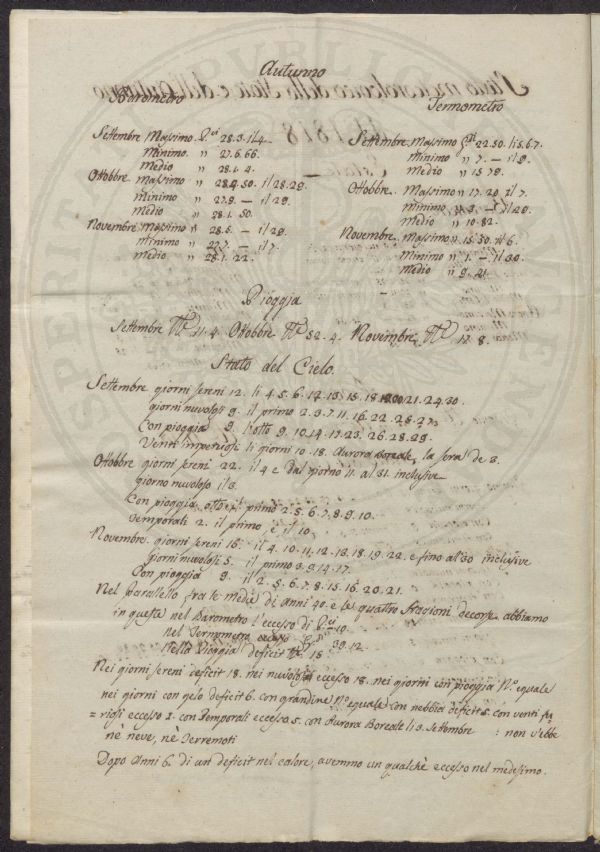 Autunno
Barometro
Termometro
Settembre Massimo P.ci 28.3. il 4
Minimo " 27.6.66.
Medio " 28.1. 4.
Ottobbre Massimo " 28.4.50. il 28.29.
Minimo " 27.9. — il 29.
Medio " 28.1. 50.
Novembre Massimo " 28.5. — il 29.
Minimo " 27.7. — il 7.
Medio " 28.1. 22.
Settembre Massimo 22.50. li 5.6.7.
Minimo " 7. — il 9.
Medio " 15 79.
Ottobbre Massimo " 17. 20 il 7.
Minimo " — il 29.
Medio " 10. 82.
Novembre Massimo " 15. 50. il 6.
Minimo " 1. — il 30.
Medio " 9. 21.
Pioggia
Settembre 11. 4. Ottobbre 52. 4. Novembre 17. 8.
Stato del Cielo.
Settembre giorni sereni 12. li 4. 5. 6. 12. 13. 15. 18. 21. 24. 30.
giorni nuvolosi 9. il primo 2. 3. 7. 11. 16. 22. 25. 27.
Con pioggia 9. l'otto 9. 10. 14. 17. 23. 26. 28. 29.
Venti impetuosi li giorni 10. 18. Aurora boreale, la sera de 3.
Ottobbre giorni sereni 22. il 4 e dal giorno 11. al 31. inclusive
giorno nuvoloso il 3.
Con pioggia otto il primo 2. 5. 6. 7. 8. 9. 10.
Temporali 2. il primo, e il 10.
Novembre giorni sereni 16. il 4. 10. 11. 12. 13. 18. 19. 22. e fino al 30 inclusive
giorni nuvolosi 5. il primo 3. 9. 14. 17.
Con pioggia 9. il 2. 5. 6. 7. 8. 15. 16. 20. 21.
Nel parallello fra le medie di anni 40. e le quattro stagioni decorse abbiamo
in queste nel Barometro l'eccesso di 19.
nel Termometro 39. 12.
nella Pioggia deficit 15.
Nei giorni sereni deficit 18. nei nuvolosi eccesso 18. nei giorni con pioggia N.o equale
nei giorni con gelo deficit 6. con grandine N.o equale con nebbia deficit 5. con venti fu
= riosi eccesso 1. con Temporali eccesso 5. con Aurora Boreale li 3. Settembre : non v'ebbe
nè neve, nè Terremoti
Dopo Anni 6. di un deficit nel calore, avemmo un qualchè eccesso nel medesimo.